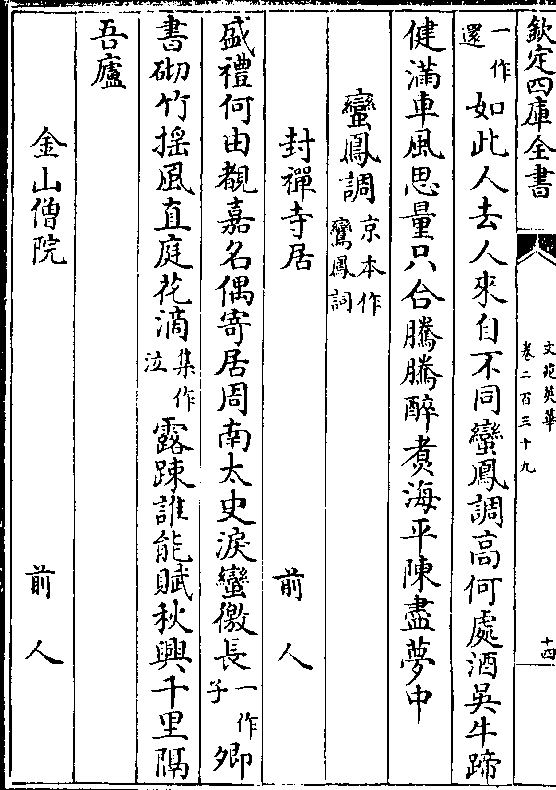 欽定四庫全書
文苑英華
卷二百三十九
十四
一作還如此人去人來自不同蠻鳳調高何處酒吳牛蹄
健滿車風思量只合騰騰醉煑海平陳盡夢中
蠻鳳調京本作鸞鳳詞
封禪寺居 前人
盛禮何由覩嘉名偶寄居周南太史淚蠻徼長一作子卿
書砌竹揺風直庭花滴集作泣露踈誰能賦秋興千里隔
吾廬
金山僧院 前人